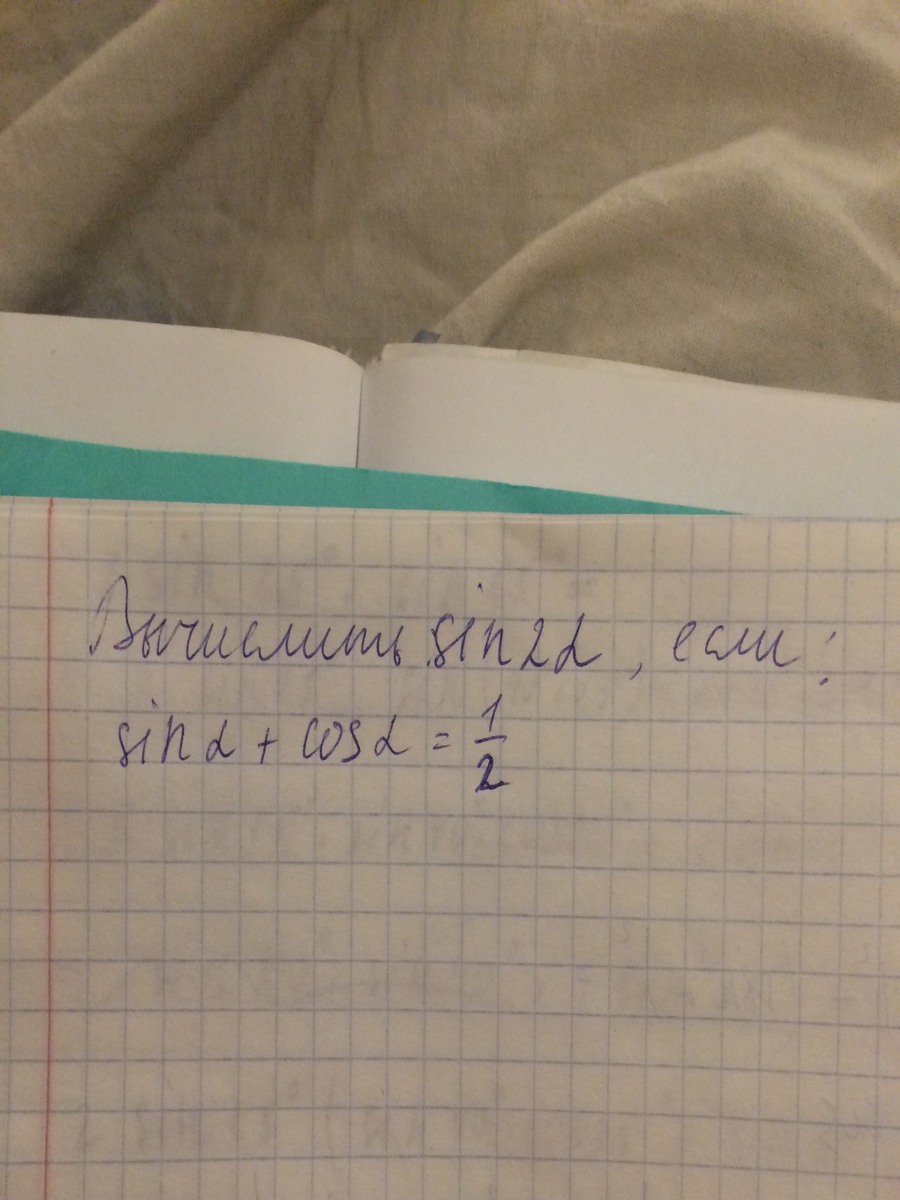 Вычислить sin2α, если:
sinα + cosα = 1/2